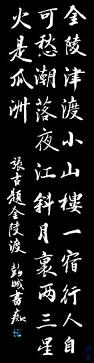 金陵津渡小山樓一宿行人自
可愁潮落夜江斜月裏兩三星
火是瓜洲
張古題金陵渡 彭城書